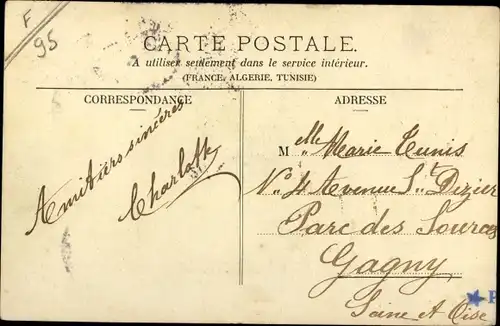 F
95
CARTE POSTALE.
A utiliser seulement dans le service intérieur.
(FRANCE, ALGERIE, TUNISIE)
CORRESPONDANCE
ADRESSE
Amitiérs sincères
Charlotte
Melle Marie Tunis
No 4 Avenue St Dizier
Parc des Sources
Gagny
Seine et Oise